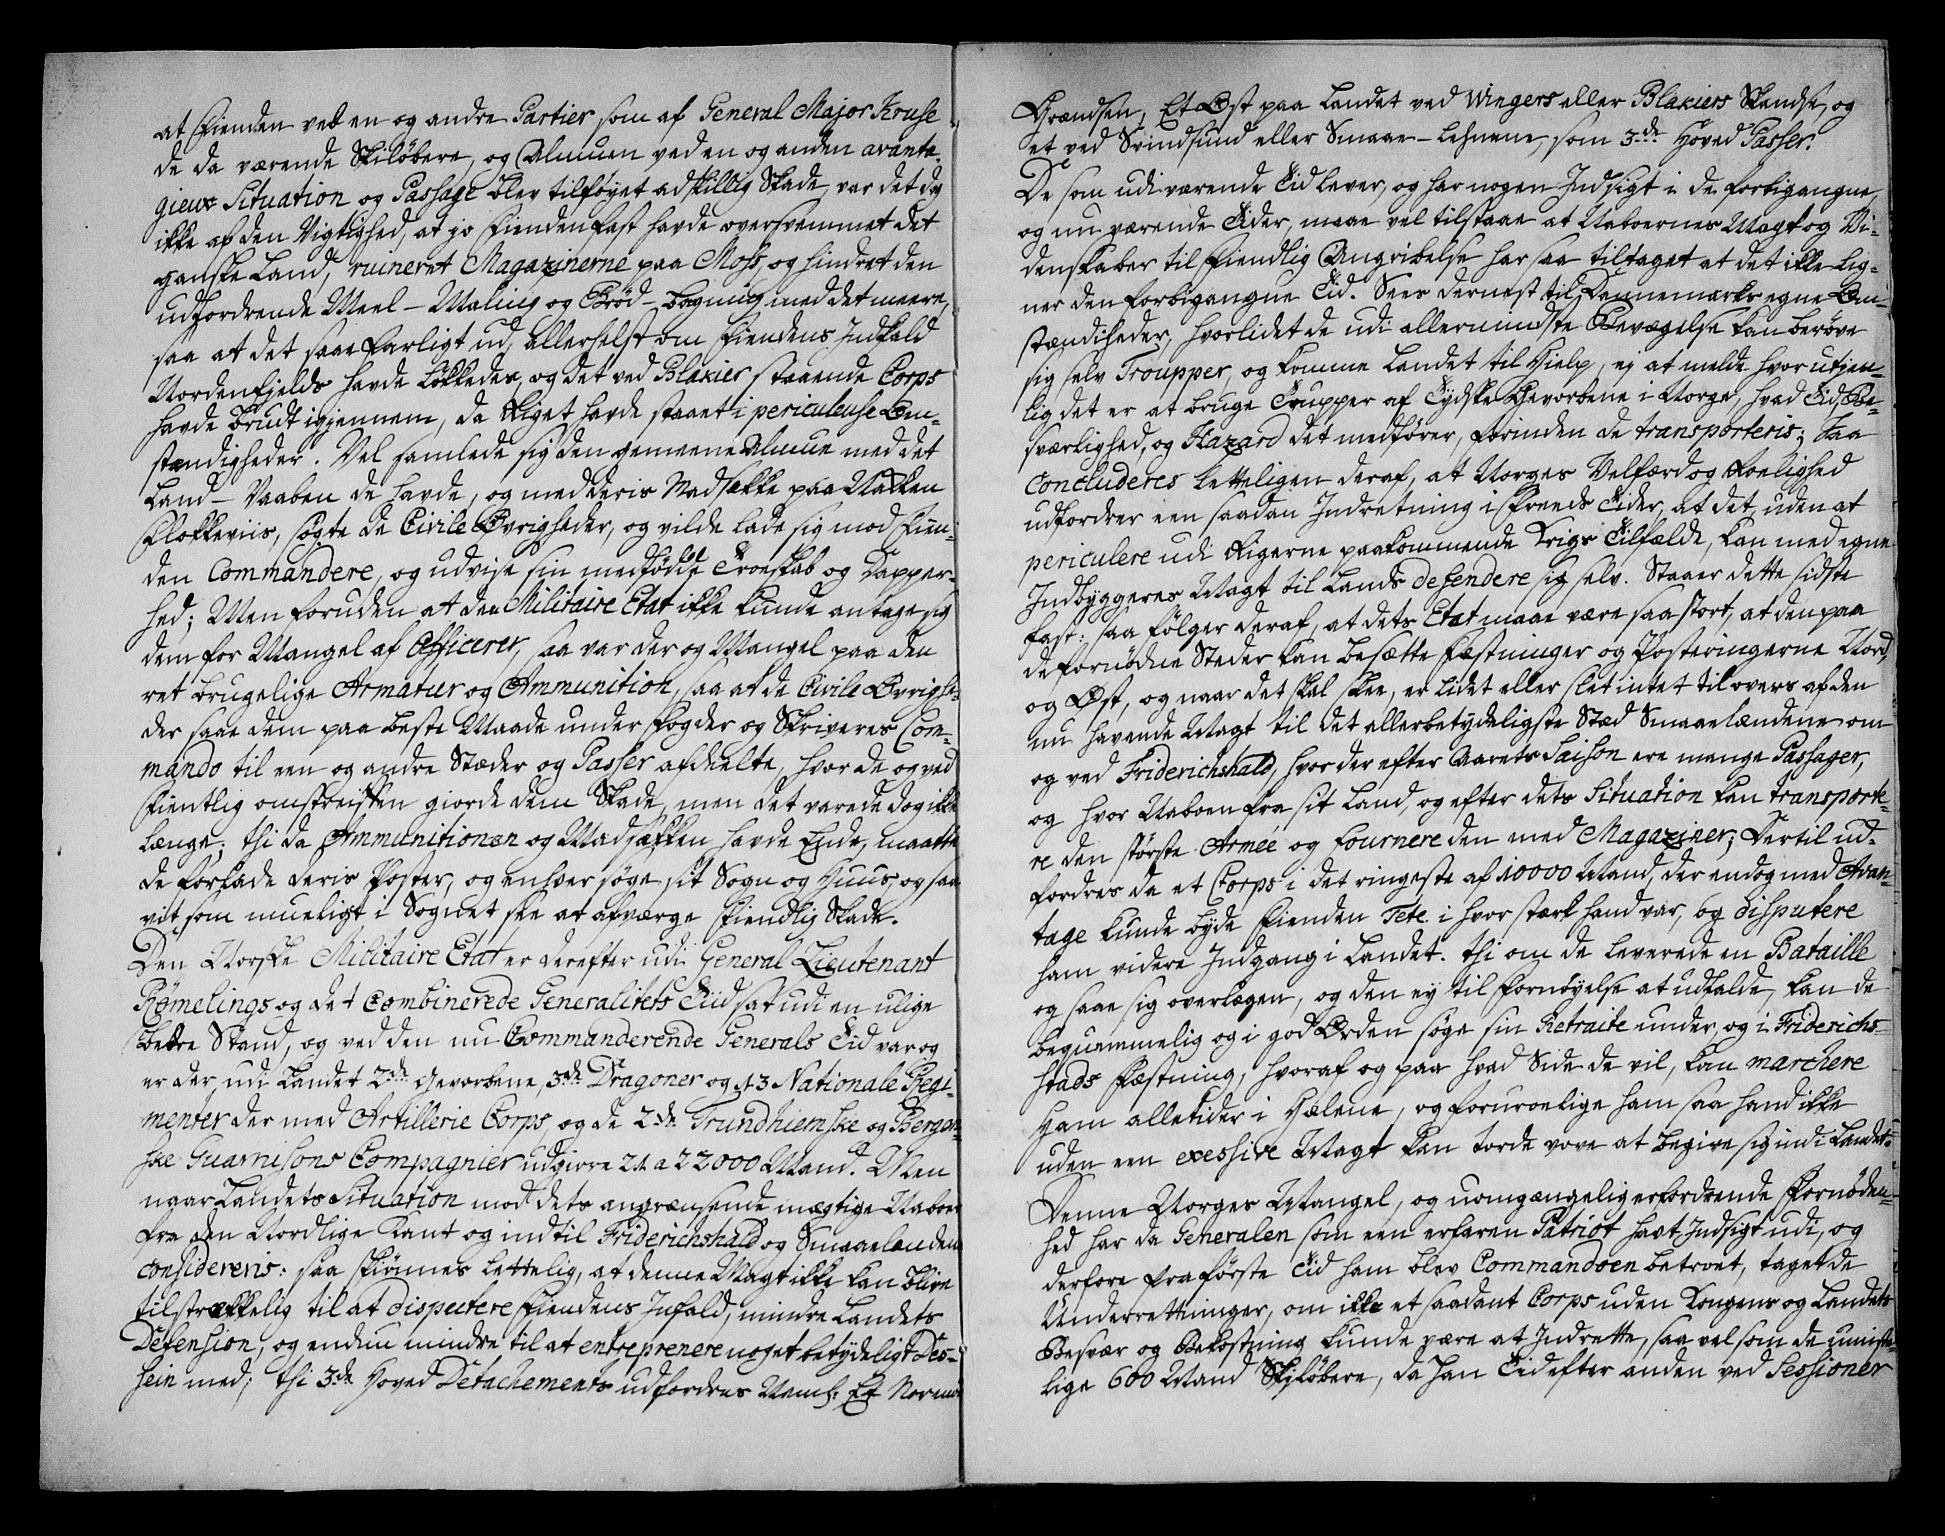 at Fienden ved en og andre Partier som af General Major Kruse
de da værende Skiløbere, og Almuen ved en og anden avanta-
gieux Situation og Passage blev tilføyet adskillig Skade, var det dog
ikke af den Vigtighed, at jo Fienden fast havde oversvemmet det
ganske Land, ruineret Magazinerne paa Moss, og hindret den
udfordrende Meel-Maling og Brød-bagning med det meere,
saa at det saae farligt ud, allerhelst om Fiendens Indfald
Nordenfields havde løkkedes, og det ved Blakier staaende Corps
havde brudt igjennem, da Riget havde staaet i periculeuse Om-
stændigheder. Vel samlede sig den gemeene Almue med det
Land-Vaaben de havde, og med deris Madsække paa Nakken
Flokkeviis, søgte de Civile Øvrigheder, og vilde lade sig mod Fien-
den Commandere, og udvise sin medfødde Troeskab og Dapper-
hed; Men foruden at den Militaire Etat ikke kunde antage sig
dem for Mangel af Officerer, saa var der og Mangel paa den
ret brugelige Armatur og Ammunition, saa at de Civile Øvrighe-
der saae dem paa beste Maade under Fogder og Skriveres Com-
mando til een og andre Stæder og Passer afdeelte, hvor de og ved
Fientlig omstreiffen giorde dem Skade, men det varede dog ikke
længe; thi da Ammunitionen og Madsækken havde Ende, maatte
de forlade deris Poster, og enhver søge sit Sogn og Huus, og saa
vit som mueligt i Sognet see at afværge Fiendlig Skade.
Den Norske Militaire Etat er derefter udi General Lieutenant
Rømelings og det Combinerede Generalitets Tiid sat udi en ulige
bedre Stand, og ved den nu Commanderende Generals Tid var og
er der, udi Landet 2de Gevorbene, 3de Dragoner og 13 Nationale Regi-
menter der med Artillerie Corps, og de 2de Trundhiemske og Bergen-
ske Guarnisons Compagnier udgiøre 21 a 22000 Mand. Men
naar Landets Situation mod dets angrænsende mægtige Naboer
fra den Nordlige Kant og indtil Friderichshald og Smaalendene
considereris: saa skiønnes lettelig, at denne Magt ikke kan blive
tilstrækkelig til at disputere Fiendens Infald, mindre Landets
Defension, og endnu mindre til at entreprenere noget betydeligt Des-
sein med; thi 3de Hoved Detachements udfordres Neml: Et Norden
Grændsen, Et Øst paa Landet ved Wingers eller Blakiers Skandse, og
et ved Svindsund eller Smaae-Lehnene, som 3de Hoved Passer.
De som udi værende Tid lever, og har nogen Indsigt i de forbigangne
og nu værende Tider, maae vel tilstaae at Naboernes Magt og Vi-
denskaber til Fiendlig Angribelse har saa tiltaget at det ikke lig-
ner den forbigangne Tid. Sees dernest til Dannemarks egne Om-
stændigheder, hvorlidet de udi allermindste Bevægelse kan berøve
sig selv Troupper, og komme Landet til Hielp, ej at melde hvor utjen-
lig det er at bruge Trupper af Tydske Gevorbene i Norge, hvad Tid, Be-
sværlighed, og Hazard det medfører, forinden de transporteris; Saa
concluderes letteligen deraf, at Norges Velfærd og Roelighed
udfordrer een saadan Indretning i Freeds Tider, at det, uden at
periculere udi Rigerne paakommende Krigs Tilfælde, kan med egne
Indbyggeres Magt til Lands defendere sig selv. Staaer dette sidste
fast: saa følger deraf, at dets Etat maae være saa stort, at den paa
de fornødne Steder kan besætte Fæstninger og Posteringerne Nord,
og Øst, og naar det skal skee, er lidet eller slet intet til overs af den
nu havende Magt til det allerbetydeligste Stæd Smaaelændene om
og ved Friderichshald, hvor der efter Aarets Saison ere mange Passager,
og hvor Naboen fra sit Land, og efter dets Situation kan transporte-
re den største Armée og fournere den med Magaziner; Dertil ud-
fordres da et Corps i det ringeste af 10000 Mand, der endog med Avan-
tage kunde byde Fienden Tete i hvor stærk hand var, og disputere
ham videre Indgang i Landet. thi om de leverede en Bataille
og saae sig overlegen, og den ey til Fornøyelse at udfalde, kan de
bequemmelig og i god Orden søge sin Retraite under, og i Friderichs
stads Fæstning, hvoraf og paa hvad Side de vil, kan marchere
Ham alletider i Hælene, og foruroelige ham saa hand ikke
uden een exessive Magt kan torde vove at begive sig ind i Landet.
Denne Norges Mangel, og uomgængelig erfordrende Fornøden-
hed har da Generalen som een erfaren Patriot havt Indsigt udi, og
derfore fra første Tid ham blev Commandoen betroet, taget de
Underretninger, om ikke et saadant Corps uden Kongens og Landets
Besvær og Bekostning kunde være at Indrette, saa vel som de umiste-
lige 600 Mand Skiløbere, da Han Tid efter anden ved Sessioner